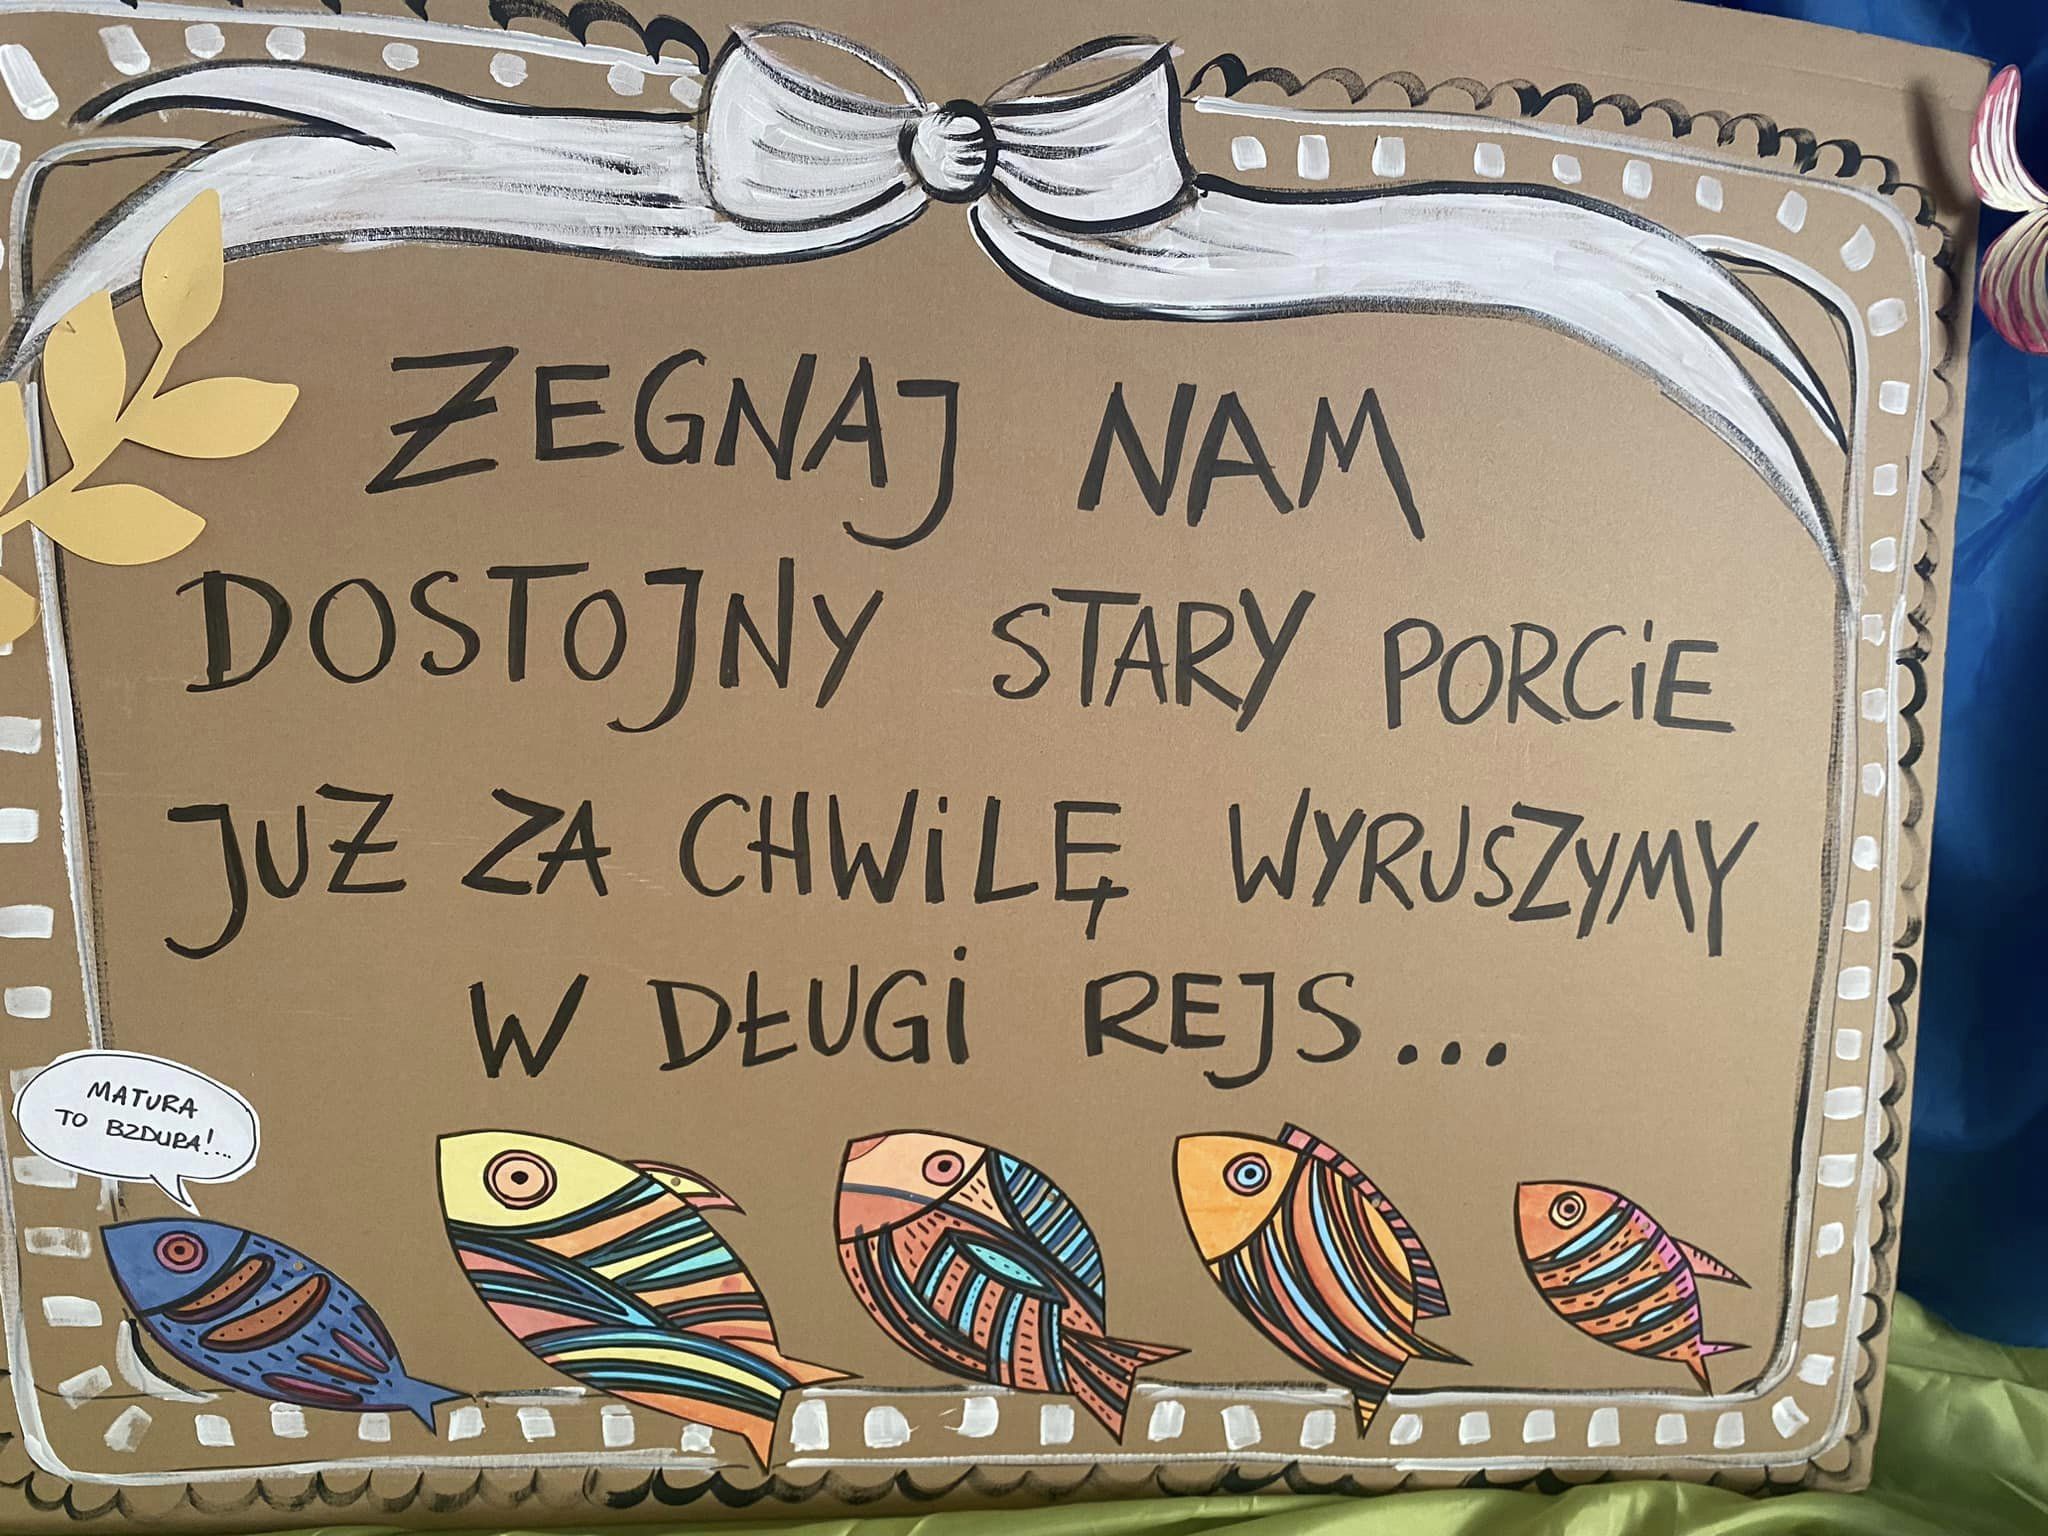 ŻEGNAJ NAM
DOSTOJNY STARY PORCIE
JUŻ ZA CHWILĘ WYRUSZYMY
W DŁUGI REJS...
MATURA
TO BZDURA!...